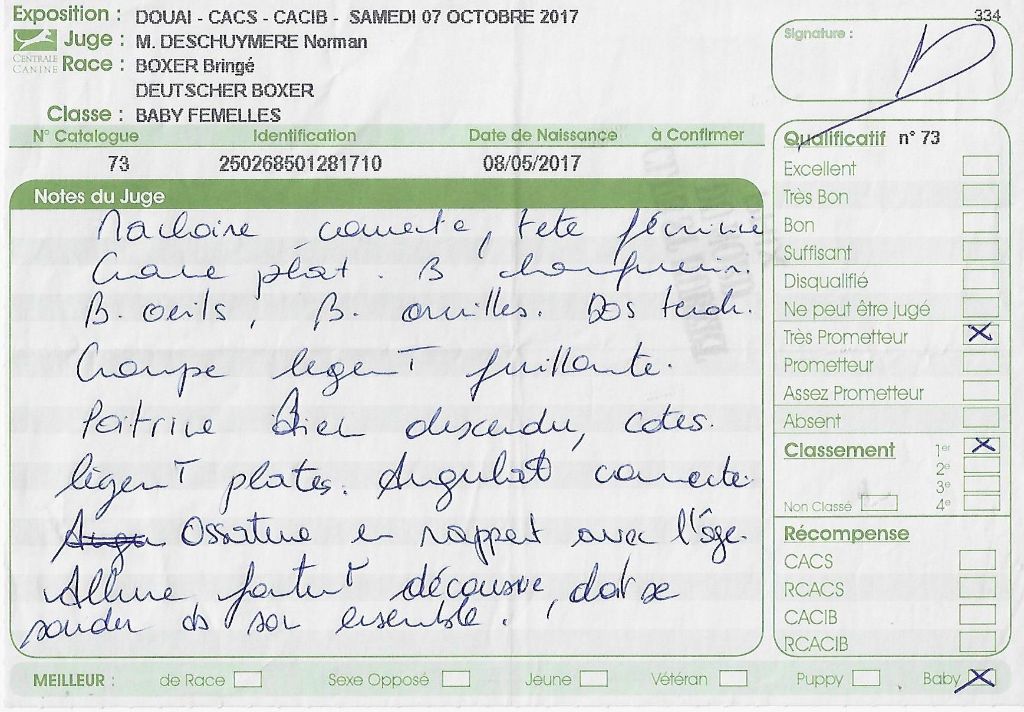 Exposition : DOUAI - CACS - CACIB - SAMEDI 07 OCTOBRE 2017
334
CENTRALE CANINE
Juge : M. DESCHUYMERE Norman
Race : BOXER Bringé
DEUTSCHER BOXER
Classe : BABY FEMELLES
Signature :
N° Catalogue Identification Date de Naissance à Confirmer
73 250268501281710 08/05/2017
Notes du Juge
Machoire correcte, tete féminine
Crane plat. B chanfrein.
B. oeils, B. oreilles. Dos tendu.
Croupe légerT fuillante.
Poitrine bien descendu, cotes.
légerT plates. Angulat° correcte
Ossature en rapport avec l'âge.
Allure décousue, doit se
souder ds son ensemble.
Qualificatif n° 73
Excellent
Très Bon
Bon
Suffisant
Disqualifié
Ne peut être jugé
Très Prometteur X
Prometteur
Assez Prometteur
Absent
Classement 1er X
2e
3e
Non Classé 4e
Récompense
CACS
RCACS
CACIB
RCACIB
MEILLEUR : de Race Sexe Opposé Jeune Vétéran Puppy Baby X